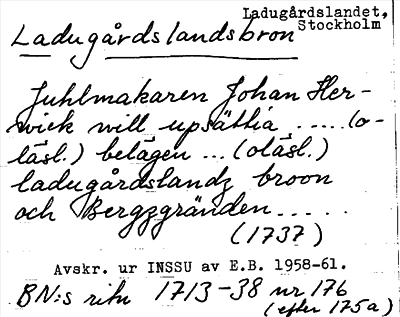 Ladugårdslandet,
Stockholm
Ladugårdslandsbron
Juhlmakaren Johan Her-
wiek will upsättia ..... (o-
läsl.) belägen ... (oläsl.)
ladugårdslandz broon
och Bergzgränden ......
(1737)
Avskr. ur INSSU av E.B. 1958-61.
BN:s ritn 1713-38 nr 176
(efter 175a)